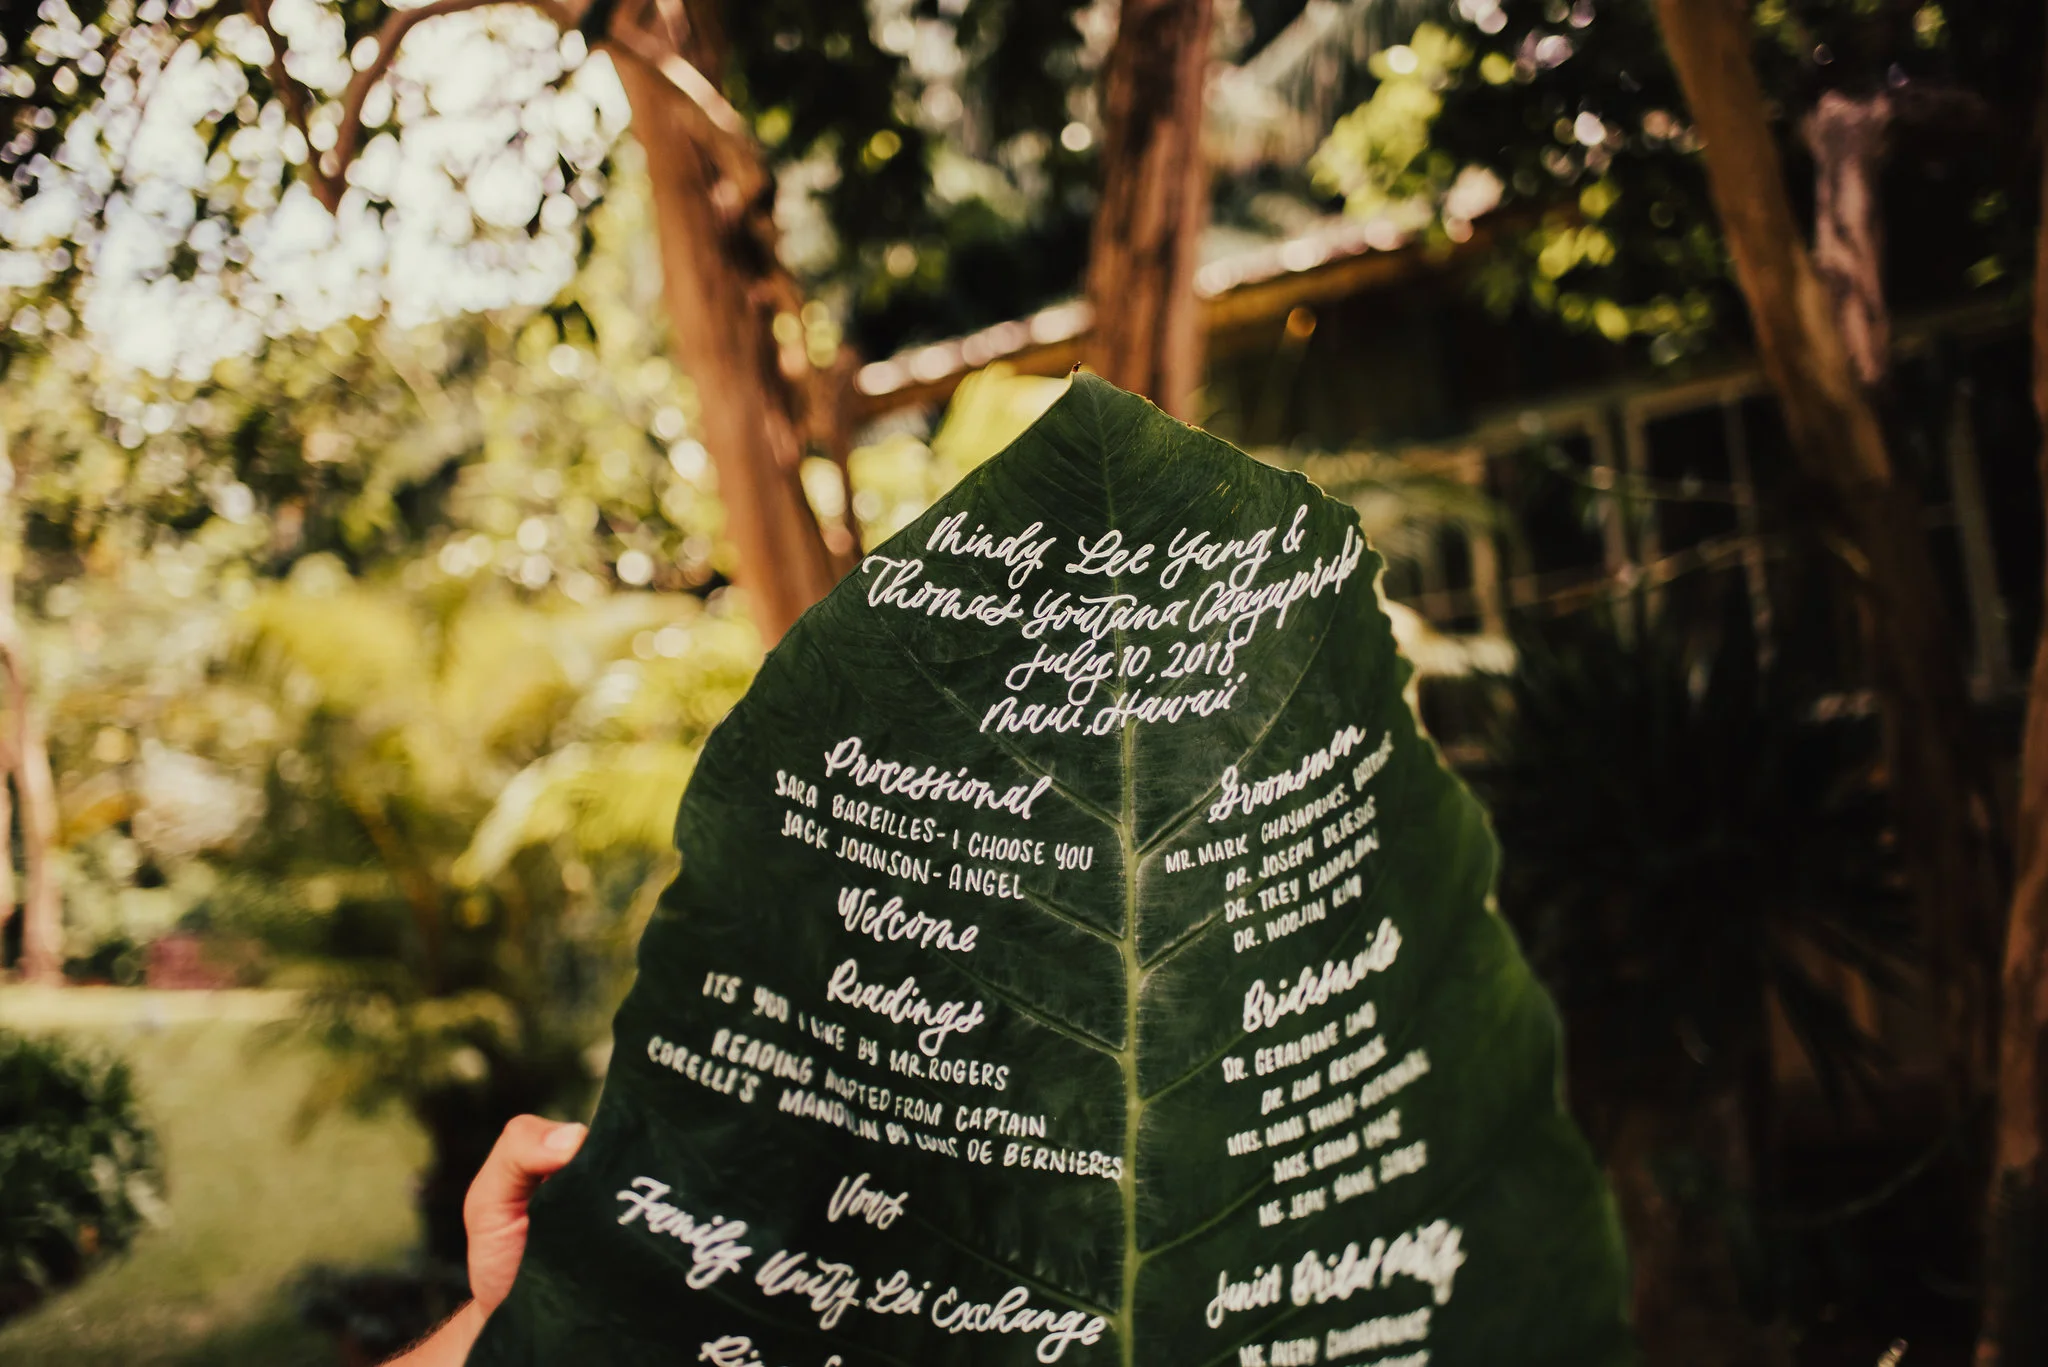 Mindy Lee Yang &
Thomas Youtana Chayapruks
July 10, 2018
Maui, Hawaii
Processional
SARA BAREILLES- I CHOOSE YOU
JACK JOHNSON- ANGEL
Welcome
Readings
ITS YOU I LIKE BY MR. ROGERS
READING ADAPTED FROM CAPTAIN
CORELLI'S MANDOLIN BY LOUIS DE BERNIERES
Vows
Family Unity Lei Exchange
Groomsmen
MR. MARK CHAYAPRUKS,
DR. JOSEPH DEJESUS
DR. TREY
DR. WOOJIN KIM
Bridesmaids
DR. GERALDINE
DR. KIM
MRS. MIMI
MRS.
MS. JEAN
Junior Bridal Party
MS. AVERY CHAYAPRUKS